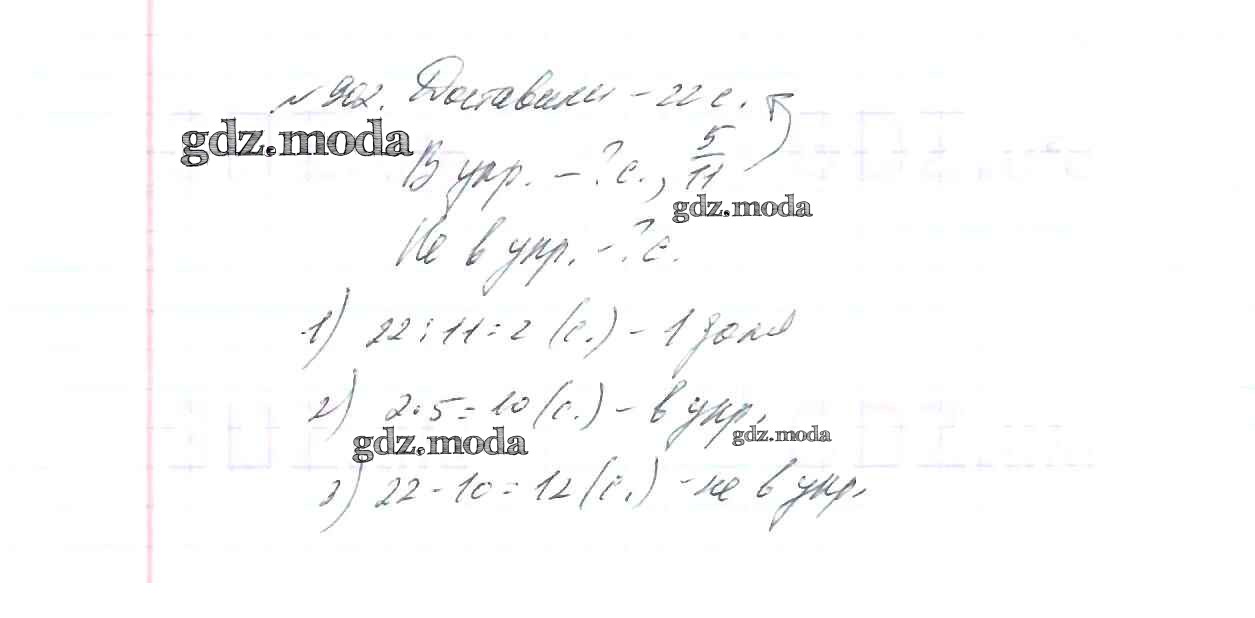 № 902. Доставили - 22 с.
gdz.moda
В упр. - ? с., 5/11
gdz.moda
Не в упр. - ? с.
1) 22 : 11 = 2 (с.) - 1 доля
2) 2 · 5 = 10 (с.) - в упр.
gdz.moda gdz.moda
3) 22 - 10 = 12 (с.) - не в упр.